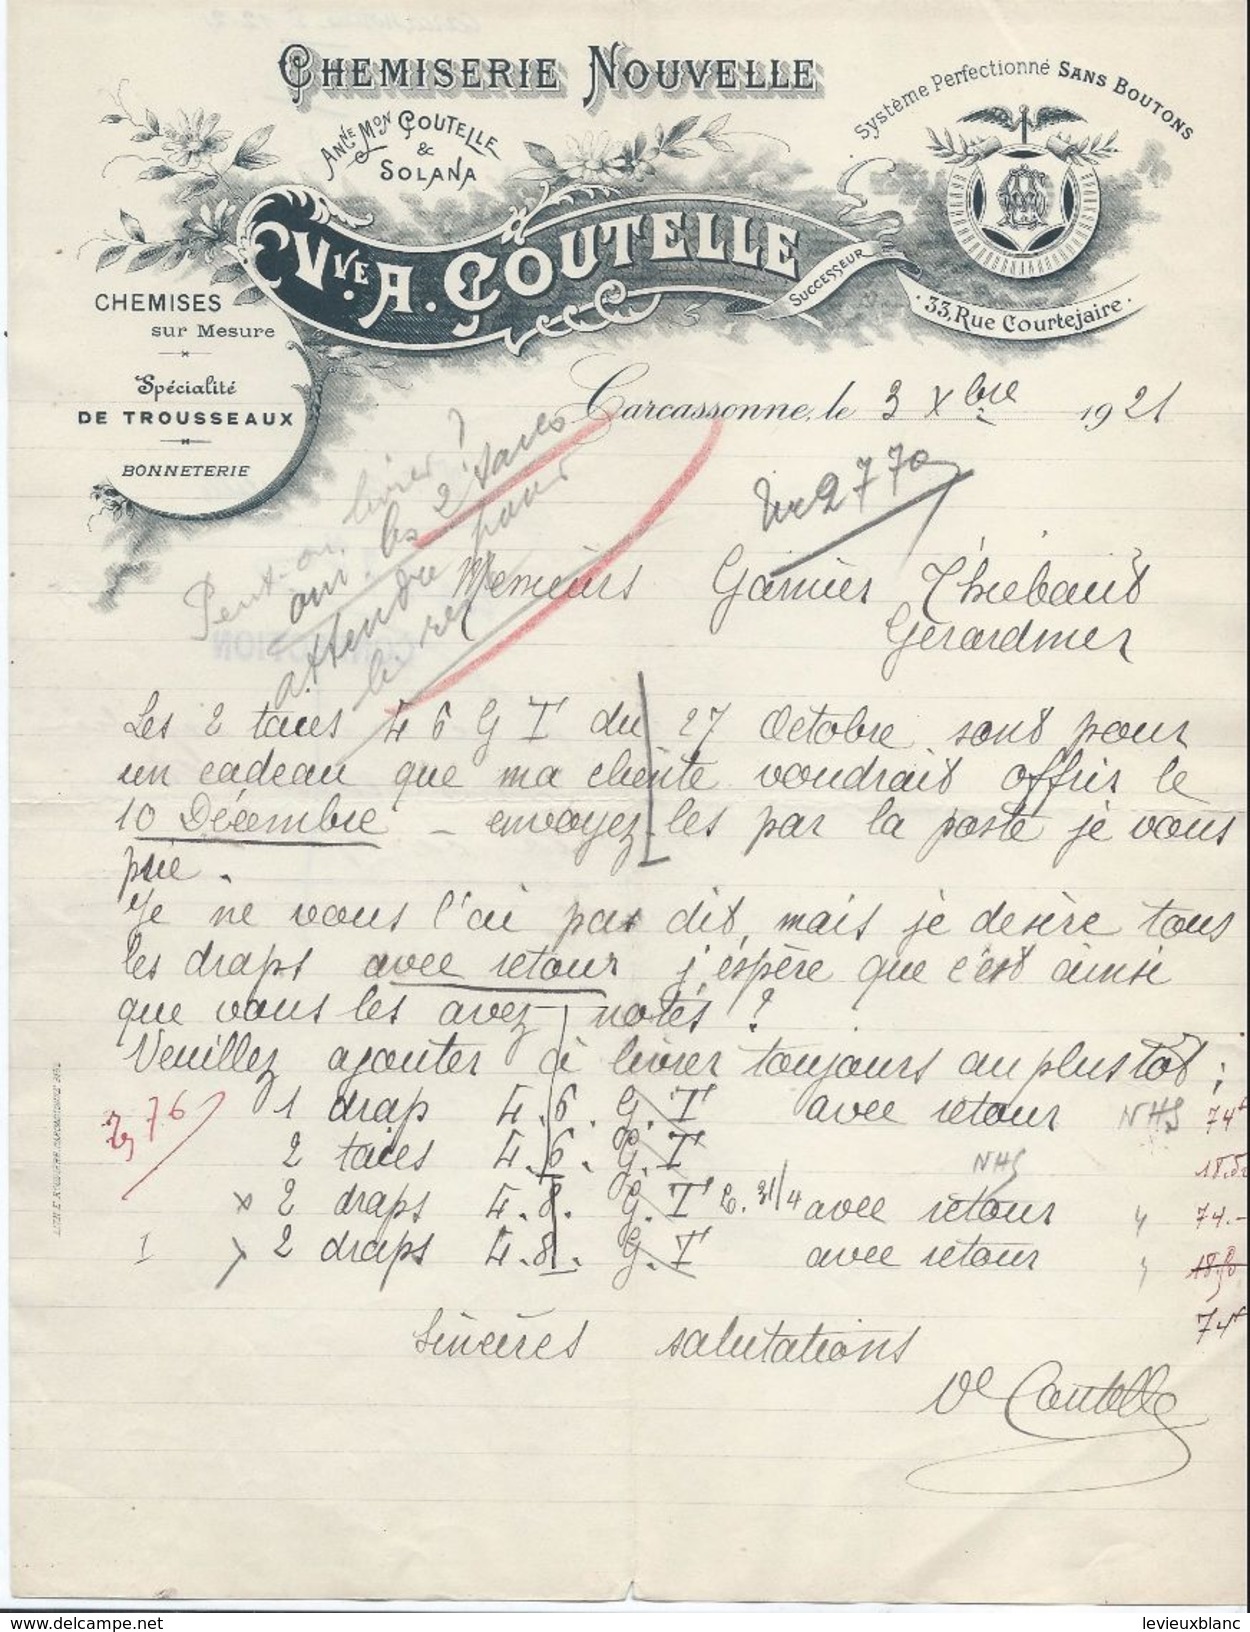 CHEMISERIE NOUVELLE
Système Perfectionné SANS BOUTONS
ANNE MON COUTELLE
&
SOLANA
VVE A. COUTELLE
SUCCESSEUR
33, Rue Courtejaire
CHEMISES
sur Mesure
Spécialité
DE TROUSSEAUX
BONNETERIE
Carcassonne, le 3 Xbre 1921
2770
Peut-on livrer?
les 2 taies
ou attendre pour
livrer
Messieurs Garnier Thiebaut
Gerardmer
Les 2 taies 46 GT du 27 Octobre sont pour
un cadeau que ma cliente voudrait offrir le
10 Décembre - envoyez-les par la poste je vous
prie.
Je ne vous l'ai pas dit, mais je desire tous
les draps avec retour j'espère que c'est ainsi
que vous les avez notés ?
Veuillez ajouter à livrer toujours au plus tôt ;
76
1 drap 4.6. G.T avec retour NHS 74
2 taies 4.6. G.T 18.50
NHS
x 2 draps 4.8. G.T avec retour " 74.-
I 2 draps 4.8. G.T avec retour " 18.50
74
Sincères salutations
Ve Coutelle
www.delcampe.net
levieuxblanc